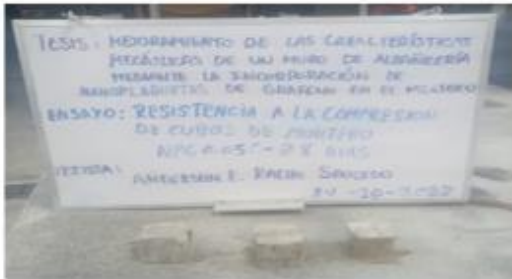 TESIS: MEJORAMIENTO DE LAS CARACTERÍSTICAS
MECÁNICAS DE UN MURO DE ALBAÑILERÍA
MEDIANTE LA INCORPORACIÓN DE
NANOPLAQUETAS DE GRAFENO EN EL MORTERO
ENSAYO: RESISTENCIA A LA COMPRESION
DE CUBOS DE MORTERO
28 DIAS
TESISTA: ANDERSON E.